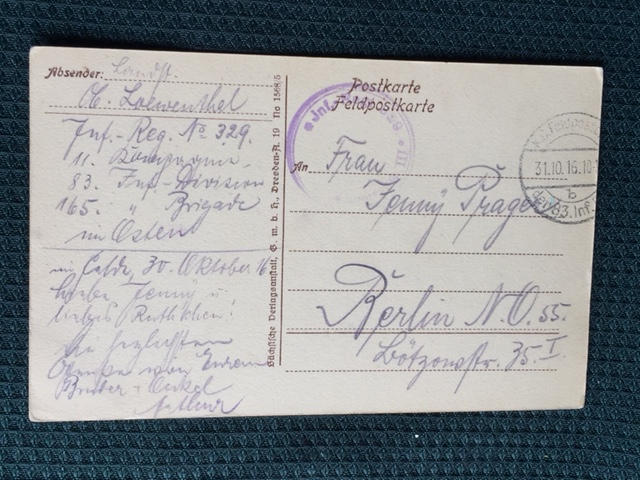 Absender: Landst.
A. Loewenthel
Inf.-Reg. No 329.
11. Kompagnie
83. Inf-Division
165. " Brigade
im Osten
im Felde, 30. Oktober 16
Liebe Jenny u.
liebes Ruthchen!
Die herzlichsten
Grüsse von Eurem
Bruder - Onkel
Arthur
Sächsische Verlagsanstalt, G. m. b. H., Dresden-A. 19 No 1568/5
Postkarte
Feldpostkarte
Inf. 
III
An Frau
Jenny Prager
Berlin N.O. 55.
Bötzowstr. 35 I
31.10.16.10-
b
der 83. Inf.